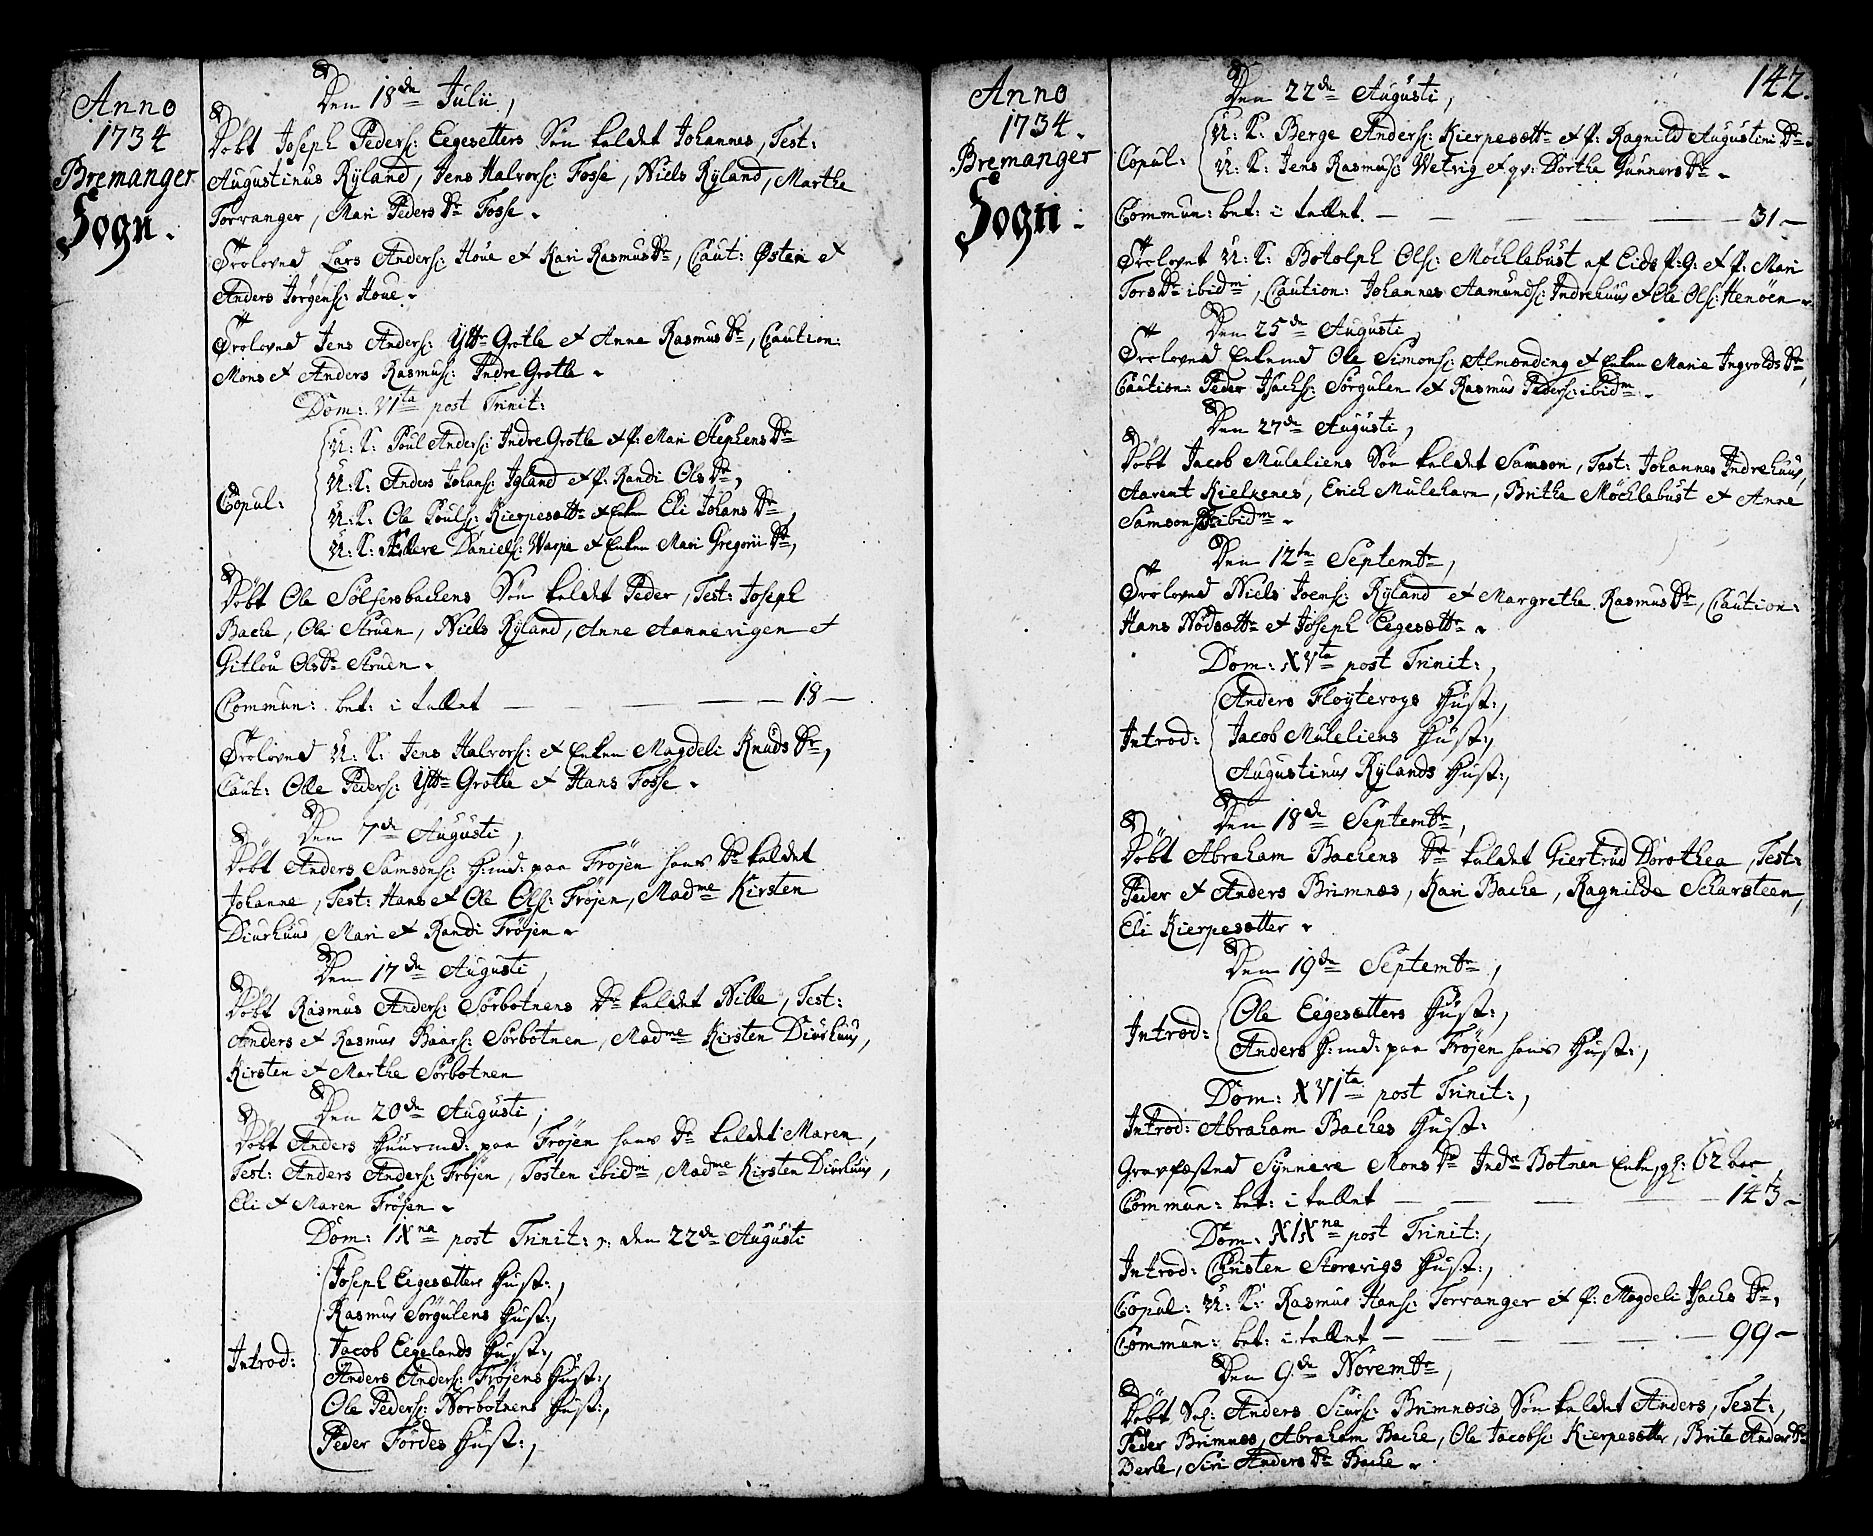 Anno
1734
Bremanger
Sogn.
Den 18de Julii,
Døbt Joseph Peders: Eegesetters Søn kaldet Johannes, Test:
Augustinus Ryland, Jens Halvors: Fosse, Niels Ryland, Marthe
Torvanger, Mari Peders Dr Fosse.
Troloved Lars Anders: Houe et Kari Rasmus Dr, Caut: Østen et
Anders Jørgens: Houe.
Troloved Jens Anders: Yttr Grotle et Anne Rasmus Dr, Caution:
Mons et Anders Rasmus: Indre Grotle.
Dom: VIta post Trinit:
U: K: Poul Anders: Indre Grotle et P: Mari Stephens Dr
U: K: Anders Johans: Igland et P: Randi Ols Dr,
Copul:
U: K: Ole Pouls: Kierpesættr et Enken Eli Johans Dr,
U: K: Daniels: Warpe et Enken Mari Gregorii Dr,
Døbt Ole Sølfersbachens Søn kaldet Peder, Test: Joseph
Bache, Ole Struen, Niels Ryland, Anne Aannevigen et
Gitlou Ols Dr Struen.
Commun: bet: i tallet — 18 —
Troloved U: K: Jens Halvors: et Enken Magdeli Knuds Dr,
Caut: Olle Peders: Yttr Grotle et Hans Fosse.
Den 7de Augusti,
Døbt Anders Samsons: H:md: paa Frøjen hans Dr kaldet
Johanne, Test: Hans et Ole Ols: Frøjen, Madme Kirsten
Diurhuus, Mari et Randi Frøjen.
Den 17de Augusti,
Døbt Rasmus Anders: Sørbotnens Dr kaldet Nille, Test:
Anders et Rasmus Baars: Sørbotnen, Madme Kirsten Diurhuus,
Kirsten et Marthe Sørbotnen
Den 20de Augusti,
Døbt Anders Huusmd: paa Frøjen hans Dr kaldet Maren,
Test: Anders Anders: Frøjen, Tosten ibidm, Madme Kirsten Diurhuus,
Eli et Maren Frøjen.
Dom: IXna post Trinit: den 22de Augusti
Joseph Eegesætters Hust:,
Rasmus Sørgulens Hust:,
Introd:
Jacob Eegelands Hust:,
Anders Anders: Frøjens Hust:,
Ole Peders: Norbotnens Hust:,
Peder Førdes Hust:,
Anno
1734.
Bremanger
Sogn.
142.
Den 22de Augusti,
Copul:
U: K: Berge Anders: Kierpesættr et P: Ragnild Augustini Dr.
U: K: Jens Rasmus: Wetvig et qv: Dorthe Gunners Dr.
Commun: bet: i tallet. — 31 —
Trolovet U: K: Botolph Ols: Möchlebust af Eids P: G: et P: Mari
Tors Dr ibidm, Caution: Johannes Aamunds: Indrehuus et Ole Ols: Henøen.
Den 25de Augusti,
Troloved Enkemd Ole Simons: Almending et Enken Marie Ingvolds Dr,
Caution: Peder Isachs: Sørgulen et Rasmus Peders: ibidm.
Den 27de Augusti,
Døbt Jacob Muleliens Søn kaldet Samson, Test: Johannes Indrehuus,
Aarent Kielkenes, Erich Mulehavn, Brithe Möchlebust et Anne
Samsons Dr ibidm.
Den 12te Septembr,
Troloved Niels Joens: Ryland et Margrethe Rasmus Dr, Caution:
Hans Nødsættr et Joseph Eegesættr.
Dom: XVta post Trinit:,
Anders Fløyterogs Hust:,
Introd:
Jacob Muleliens Hust:,
Augustinus Rylands Hust:,
Den 18de Septembr,
Døbt Abraham Bachens Dr kaldet Giertrud Dorothea, Test:
Peder et Anders Brimnæs, Kari Bache, Ragnilde Scharsteen,
Eli Kierpesætter.
Den 19de Septembr,
Introd:
Ole Eegesætters Hust:,
Anders H:md: paa Frøjen hans Hust:,
Dom: XVIta post Trinit:,
Introd: Abraham Baches Hust:
Gravfæsted Synneve Mons Dr Indr Botnen Enke, gl: 62 aar,
Commun: bet: i tallet — 143 —
Dom: XIXna post Trinit:,
Introd: Christen Storevigs Hust:,
Copul: U: K: Rasmus Hans: Torvanger et P: Magdeli Isachs Dr,
Commun: bet: i tallet — 99 —
Den 9de Novembr,
Døbt Anders Siurs: Brimnæsis Søn kaldet Anders, Test:,
Peder Brimnæs, Abraham Bache, Ole Jacobs: Kierpesætter, Brite Anders Dr
Derle, Siri Anders Dr Bache.